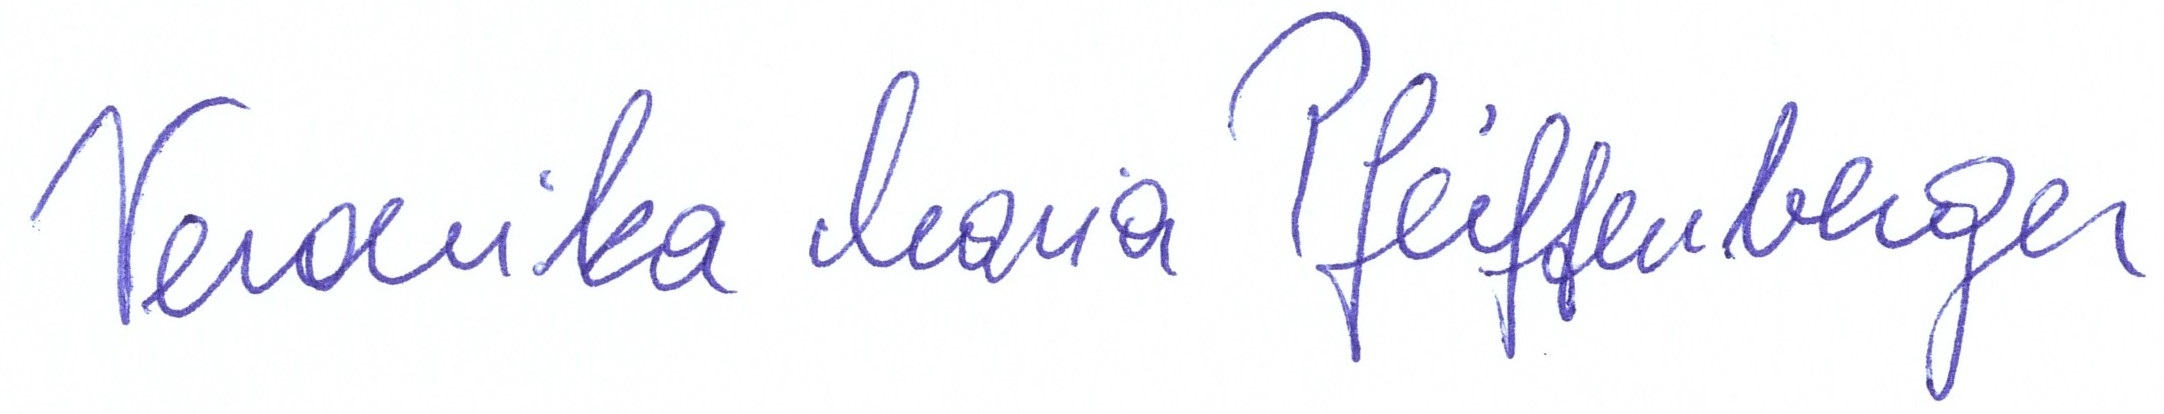 Veronika Maria Pfeiffenberger